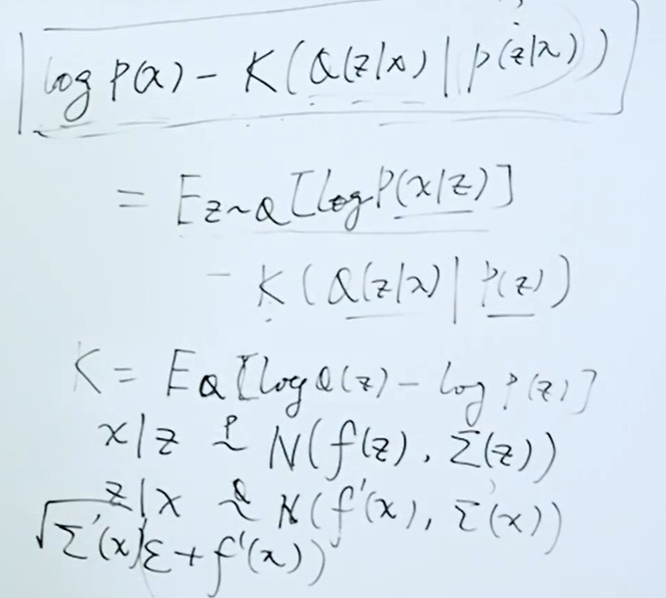 log P(x) - K(Q(z|x) | p(z|x))
= E z~Q [log P(x|z)]
- K(Q(z|x) | P(z))
K = E Q [log Q(z) - log P(z)]
x|z ~ᴾ N(f(z), Σ(z))
z|x ~ᵠ N(f'(x), Σ'(x))
√Σ'(x) ε + f'(x))